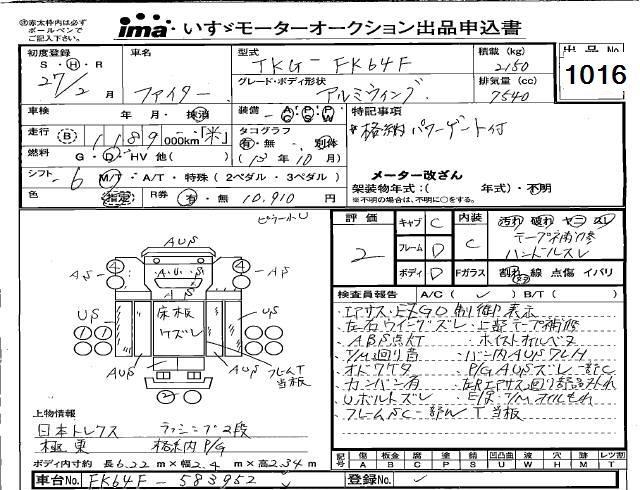 ㊟赤太枠内は必ず
ボールペンで
ご記入下さい。
ima・いすゞモーターオークション出品申込書
初度登録
S・H・R
27/2月
車名
ファイター
型式
TKG-FK64F
グレード・ボディ形状
アルミウィング
積載(kg)
2150
排気量(cc)
7540
出品No
1016
車検 年・月・抹消
装備 A/C P/S P/W
特記事項
*格納パワーゲート付
走行 B 1189 000km「米」
タコグラフ
有・無 別体
(13年10月)
燃料 G・D・HV 他( )
メーター改ざん
架装物年式:( 年式)・不明
※不明の場合は、不明に○をする。
シフト 6 M/T・A/T・特殊(2ペダル・3ペダル)
色 指定 R券 有・無 10,910円
評価
2
キャブ C
フレーム D
ボディ D
内装
C
Fガラス
汚れ 破れ ヤニ スレ
テープ補修
ハンドルスレ
割れ 線 点傷 イバリ
検査員報告 A/C( ✓ ) B/T( )
AUS
4 4
AS AS
A・U・S
US US
床板
ワズレ
AUS AUS
フレームT
当板
2
・左右ウイングズレ・上部テープ補修
・ABS点灯
・T/M廻り音
・オドワケタ
・Uボルトズレ
・フレームSC一部ルT当板
上物情報
日本トレクス ラッシング2段
極東 格納P/G
ボディ内寸約 長6.22m×幅2.4m×高2.34m
記号 傷A 板金B 腐C 塗P 錆S 凹凸曲U 波W 穴H 跡M レツ割T
車台No. FK64F-583952 登録No. ✓